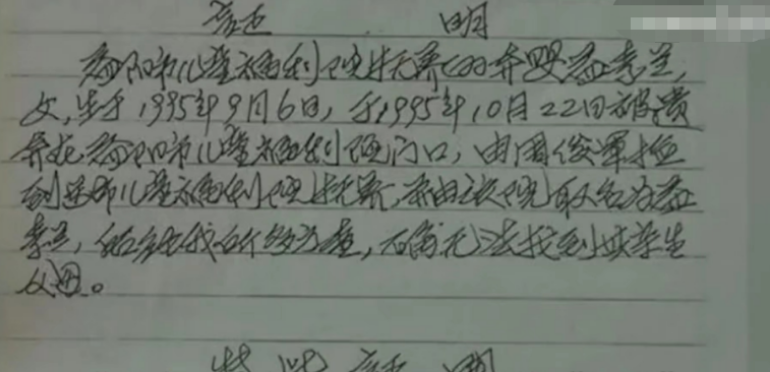 证 明
益阳市儿童福利院抚养的弃婴益孝兰,
女,生于1995年9月6日,于1995年10月22日被遗
弃在益阳市儿童福利院门口,由周俊军捡
到送市儿童福利院抚养,并由该院取名为益
孝兰,我们多方查,确无法找到其亲生
父母。
特此证明